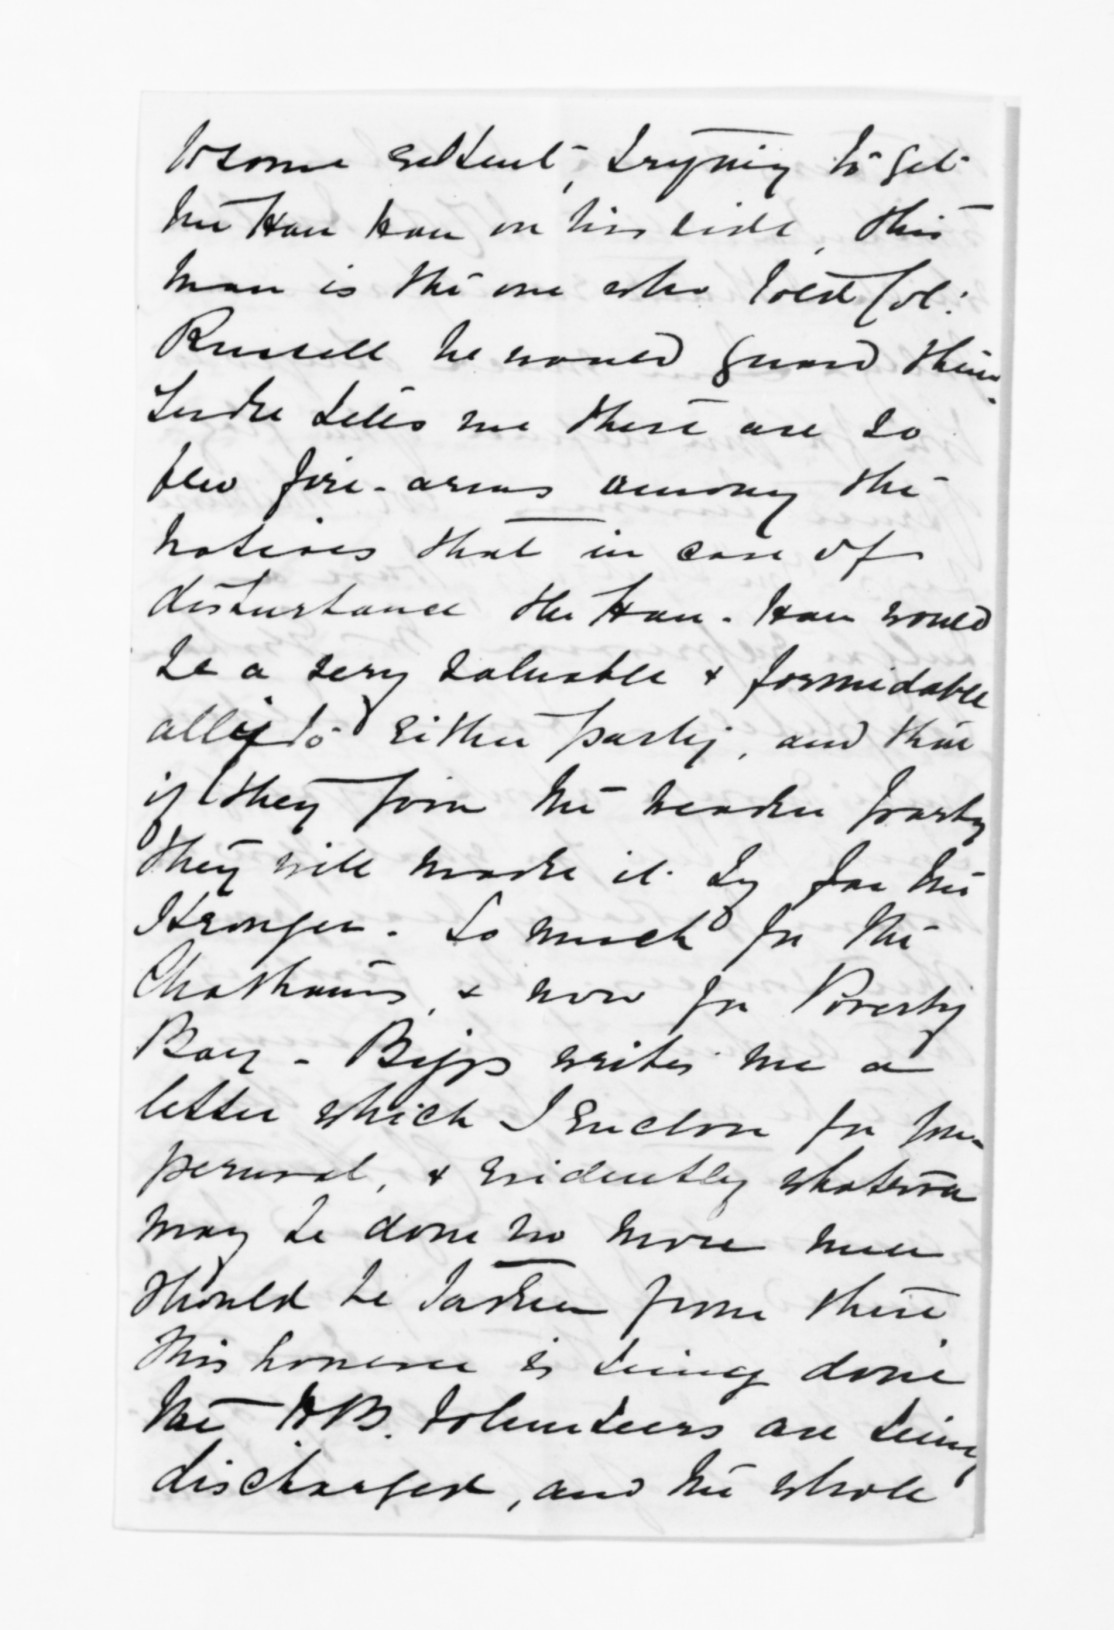 to some extent, trying to get
the Hau Hau on his side, this
man is the one who told Col:
Russell he would guard them.
Leuke tells me there are so
few fire-arms among the
natives that in case of
disturbance the Hau-Hau would
be a very valuable & formidable
ally to either party, and that
if they join the weaker party
they will make it by far the
stronger. So much for the
Chathams, & now for Poverty
Bay - Biggs writes me a
letter which I enclose for your
perusal, & evidently whatever
may be done no more men
should be taken from there
this however is being done
the H.B. Volunteers are being
discharged, and the whole